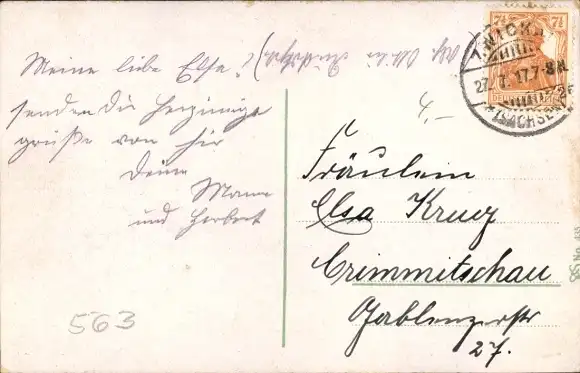 Meine liebe Elsa!
senden dir herzinnige
grüße von hir
Deine
Mama
und Herbert
4,-
ZWICKAU
27.7.17.7-8N.
(SACHSEN)
7½ 7½
Fräulein
Elsa Krug
Crimmitschau
Gablenzerstr
27.
563